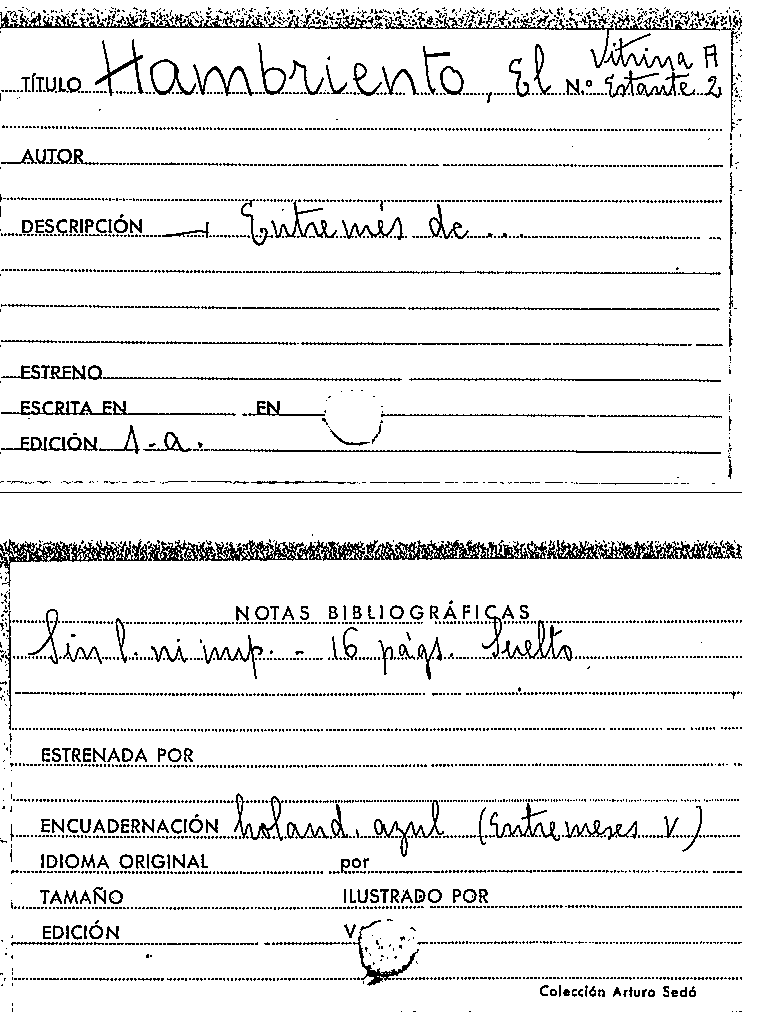 Vitrina A
TÍTULO Hambriento, El N.º Estante 2
AUTOR
DESCRIPCIÓN — Entremés de ...
ESTRENO
ESCRITA EN EN
EDICIÓN 1-a.
NOTAS BIBLIOGRÁFICAS
Sin l. ni imp. - 16 págs. Suelto
ESTRENADA POR
ENCUADERNACIÓN holand. azul (Entremeses V)
IDIOMA ORIGINAL por
TAMAÑO ILUSTRADO POR
EDICIÓN V
Colección Arturo Sedó